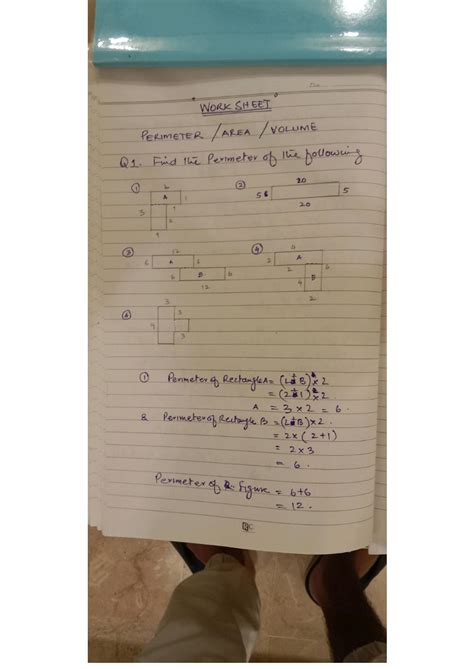 WORK SHEET
PERIMETER / AREA / VOLUME
Q1. Find the Perimeter of the following
① 2 A 1 3 1 2 1
② 20 5 5 20
③ 12 6 A 6 B 6 12
④ 6 2 A 2 6 4 B 2
3 9 3 3
① Perimeter of Rectangle A = (L+B) × 2
= (2+1) × 2
A = 3 × 2 = 6.
& Perimeter of Rectangle B = (L+B) × 2.
= 2 × (2+1)
= 2 × 3
= 6.
Perimeter of figure = 6+6
= 12.